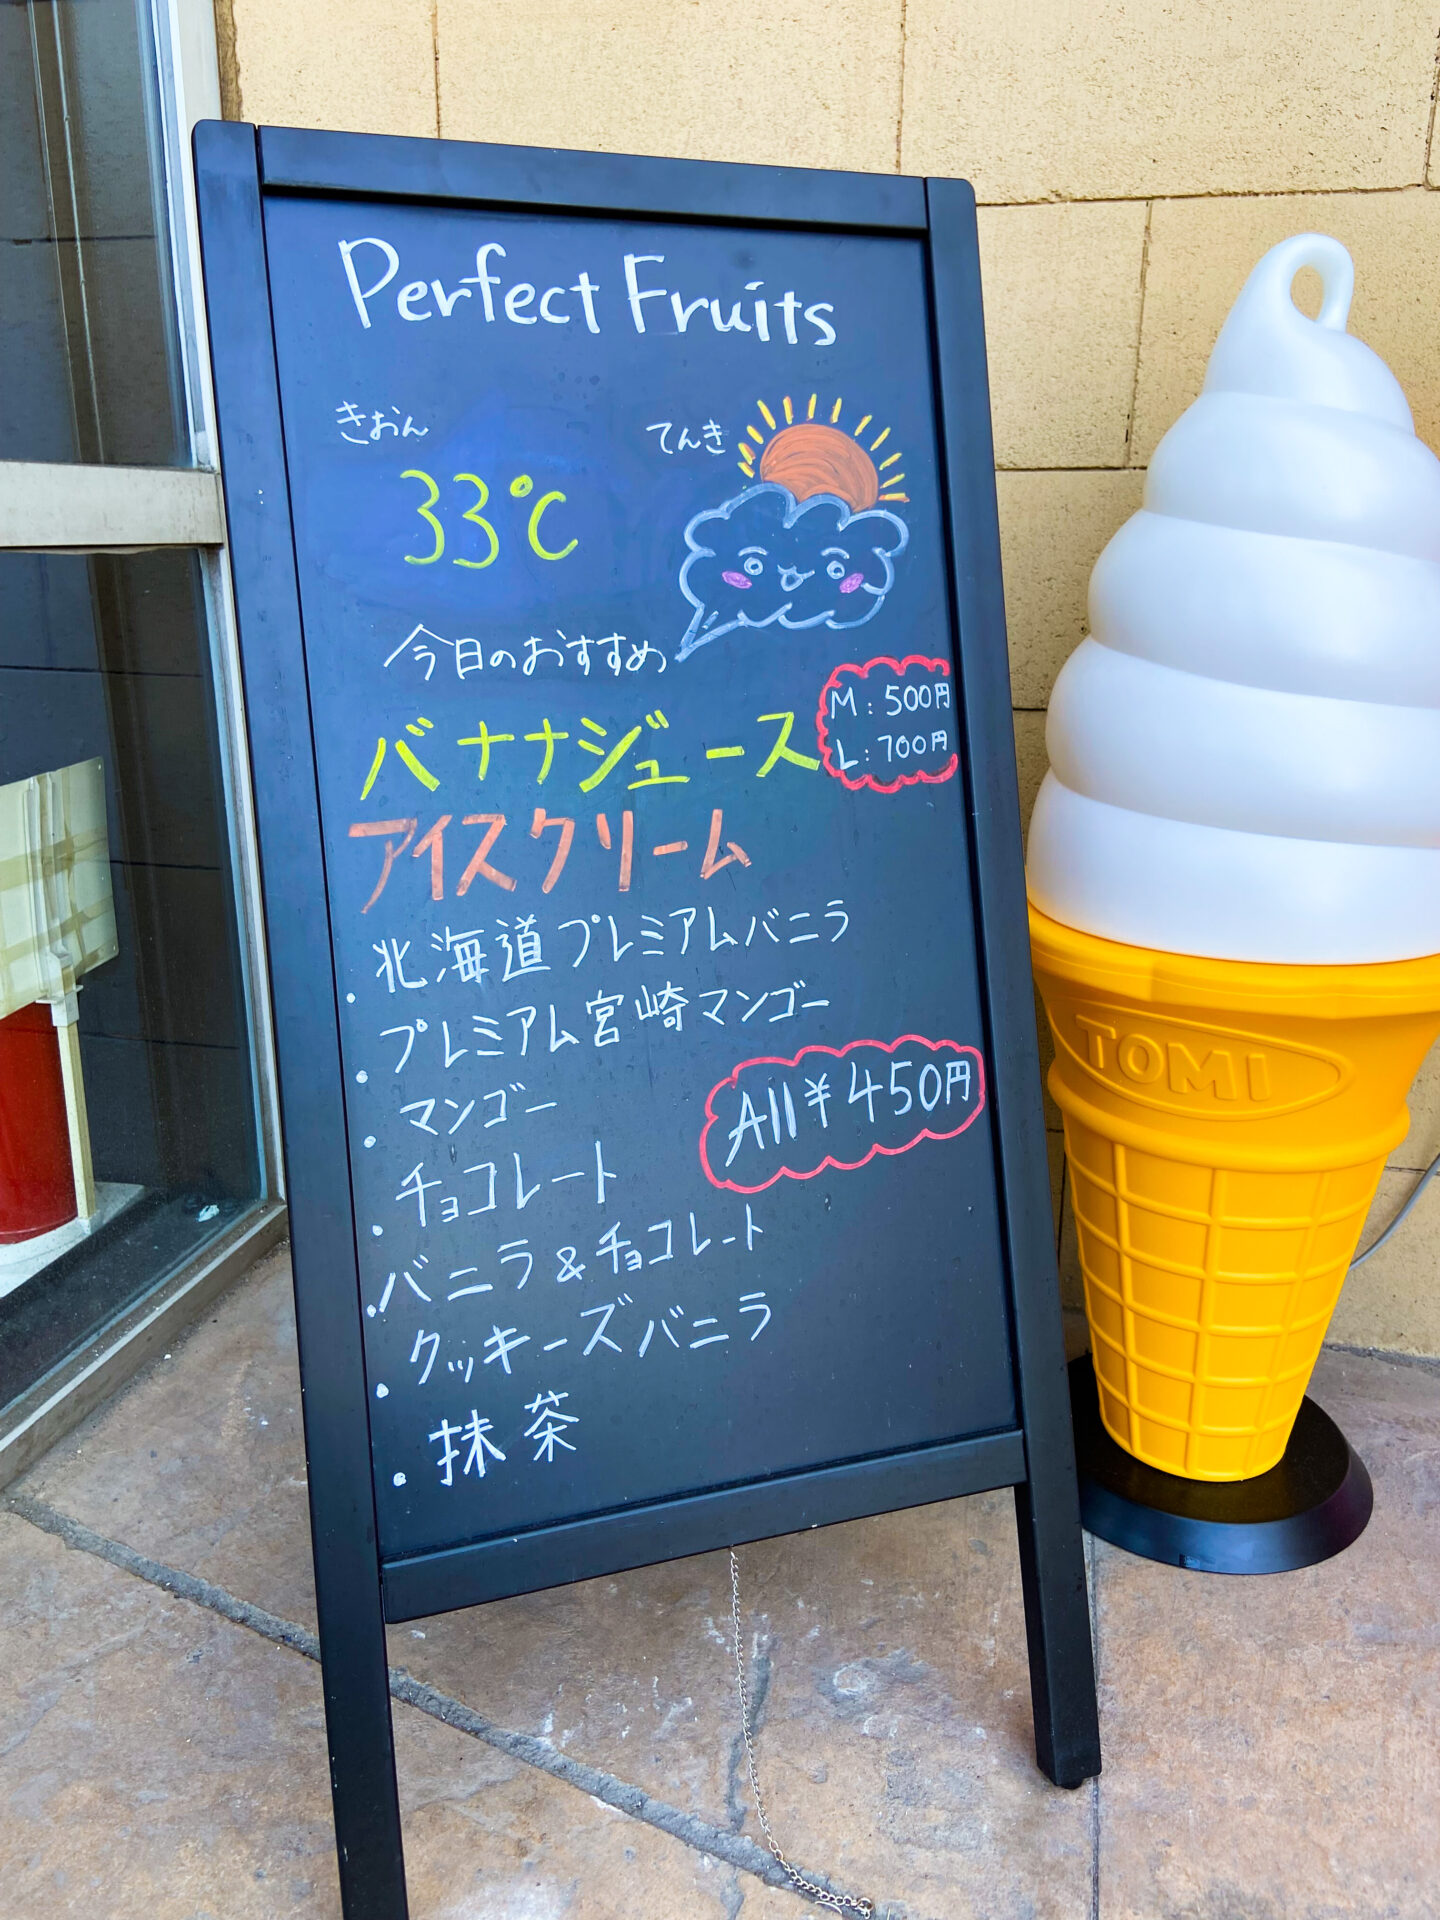 Perfect Fruits
きおん
てんき
33℃
今日のおすすめ
バナナジュース
M: 500円
L: 700円
アイスクリーム
・北海道プレミアムバニラ
・プレミアム宮崎マンゴー
・マンゴー
・チョコレート
・バニラ&チョコレート
・クッキーズバニラ
・抹茶
All ¥450円
TOMI